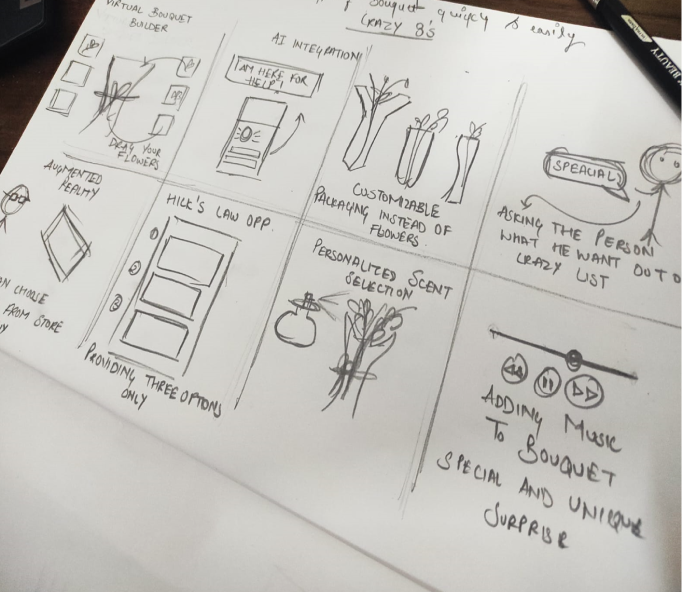 Bouquet quickly & easily
CRAZY 8'S
VIRTUAL BOUQUET
BUILDER
DRAG YOUR
FLOWERS
AI INTEGRATION
I AM HERE FOR
HELP!
CUSTOMIZABLE
PACKAGING INSTEAD OF
FLOWERS
SPEAUAL
ASKING THE PERSON
WHAT HE WANT OUT O
CRAZY LIST
AUGMENTED
REALITY
CHOOSE
FROM STORE
HICK'S LAW OPP.
1
2
3
PROVIDING THREE OPTIONS
ONLY
PERSONALIZED SCENT
SELECTION
ADDING MUSIC
TO BOUQUET
SPECIAL AND UNIQUE
SURPRISE
BEAUTY